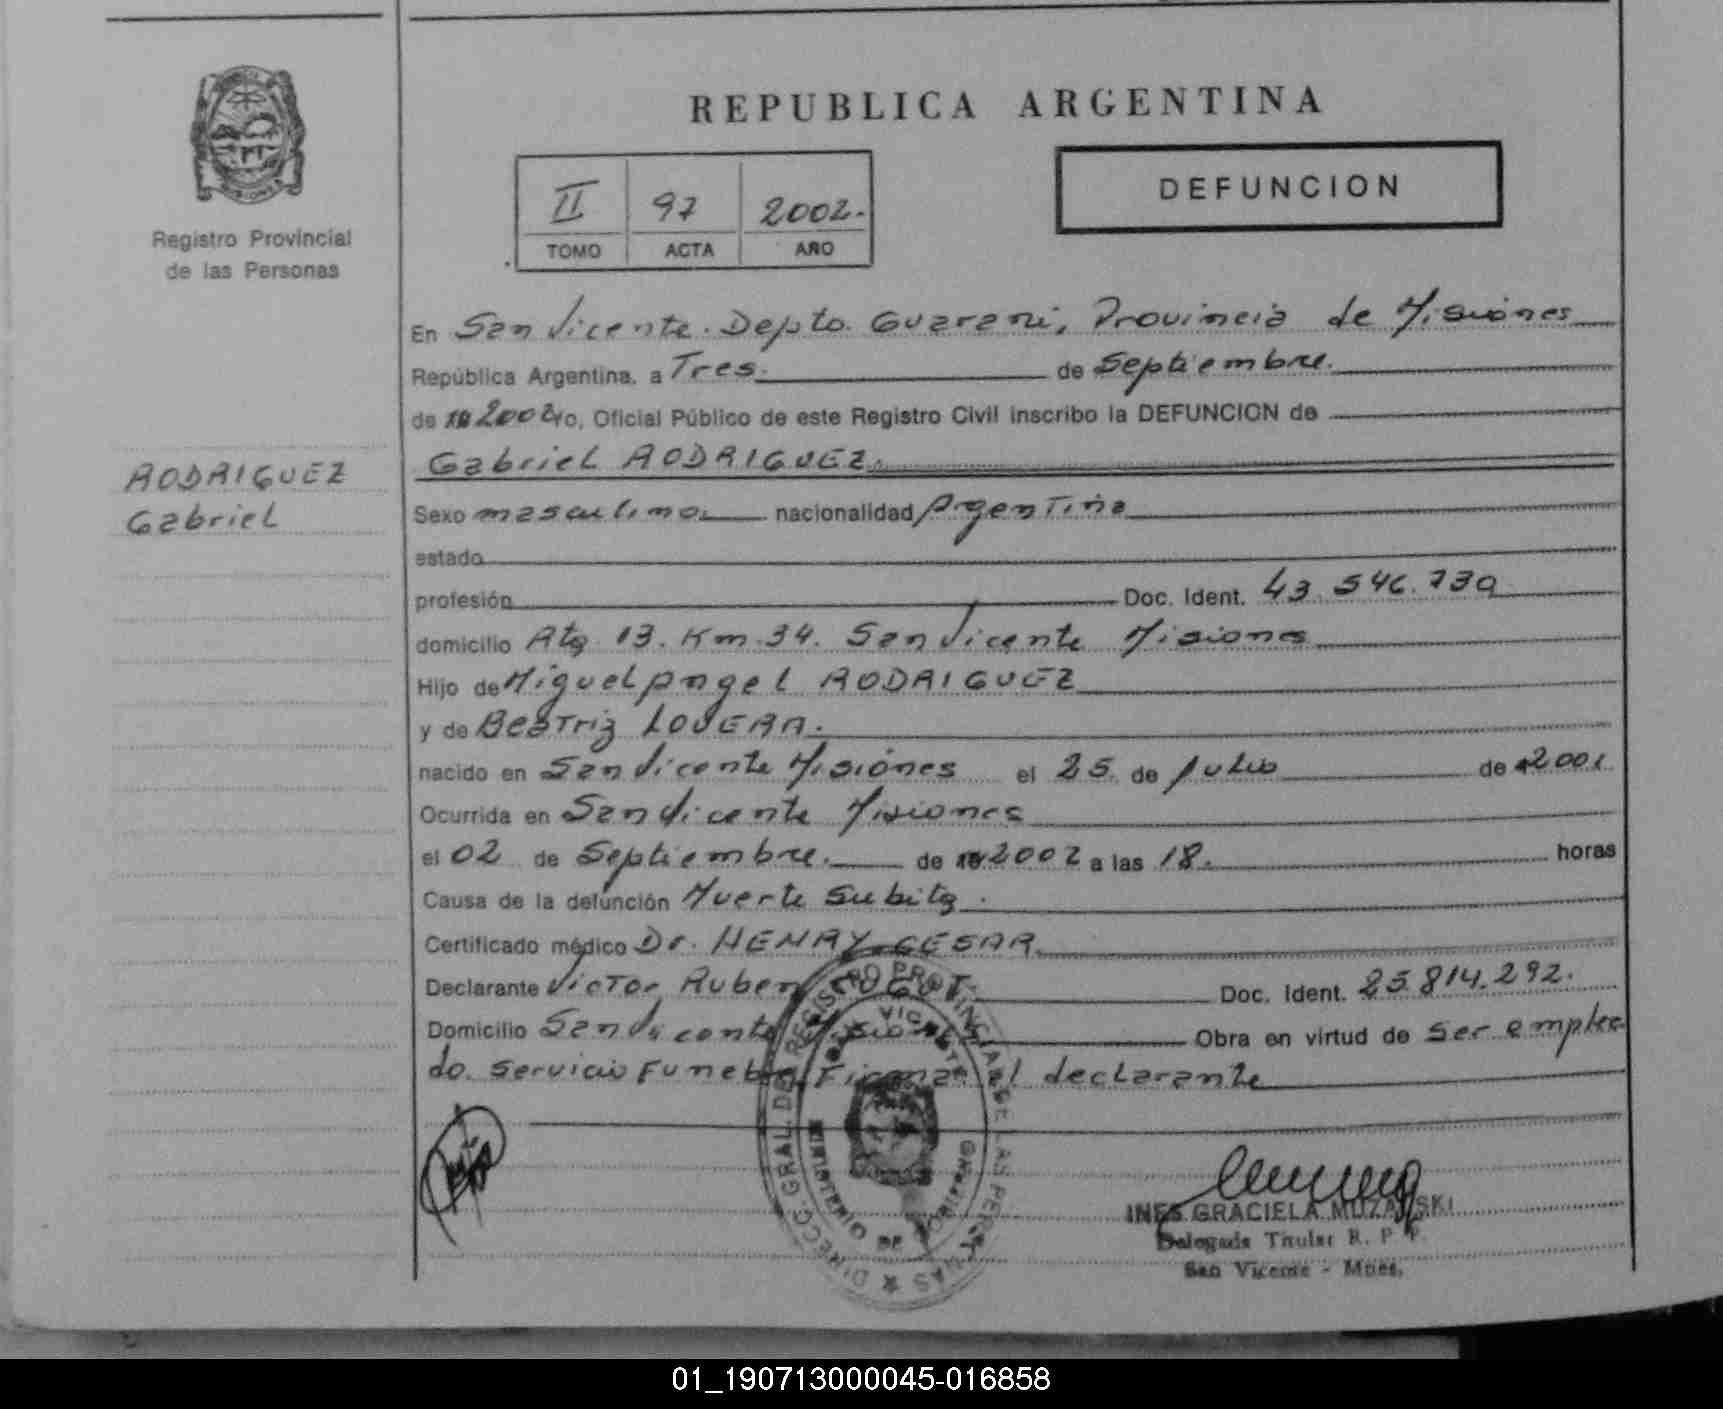 REPUBLICA ARGENTINA
II 97 2002.
TOMO ACTA AÑO
DEFUNCION
Registro Provincial
de las Personas
RODRIGUEZ
Gabriel
En San Vicente. Depto. Guarani, Provincia de Misiones
República Argentina, a Tres. de Septiembre.
de 19 2002 yo, Oficial Público de este Registro Civil inscribo la DEFUNCION de
Gabriel RODRIGUEZ.
Sexo masculino. nacionalidad Argentina
estado
profesión Doc. Ident. 43.546.730
domicilio Rta 13. Km. 34. San Vicente Misiones
Hijo de Miguel Angel RODRIGUEZ
y de Beatriz LOVERA.
nacido en San Vicente Misiones el 25 de Julio de 2001
Ocurrida en San Vicente Misiones
el 02 de Septiembre. de 19 2002 a las 18. horas
Causa de la defunción Muerte Subita.
Certificado médico Dr. HENRY CESAR
Declarante Victor Ruben Doc. Ident. 25.814.292.
Domicilio San Vicente Misiones Obra en virtud de ser emplea
do. Servicio Funebre Firma el declarante
DIRECC. GRAL. DEL REGISTRO PROVINCIAL DE LAS PERSONAS
INES GRACIELA MUZALSKI
Delegada Titular R. P. P.
San Vicente - Mnes.
01_190713000045-016858